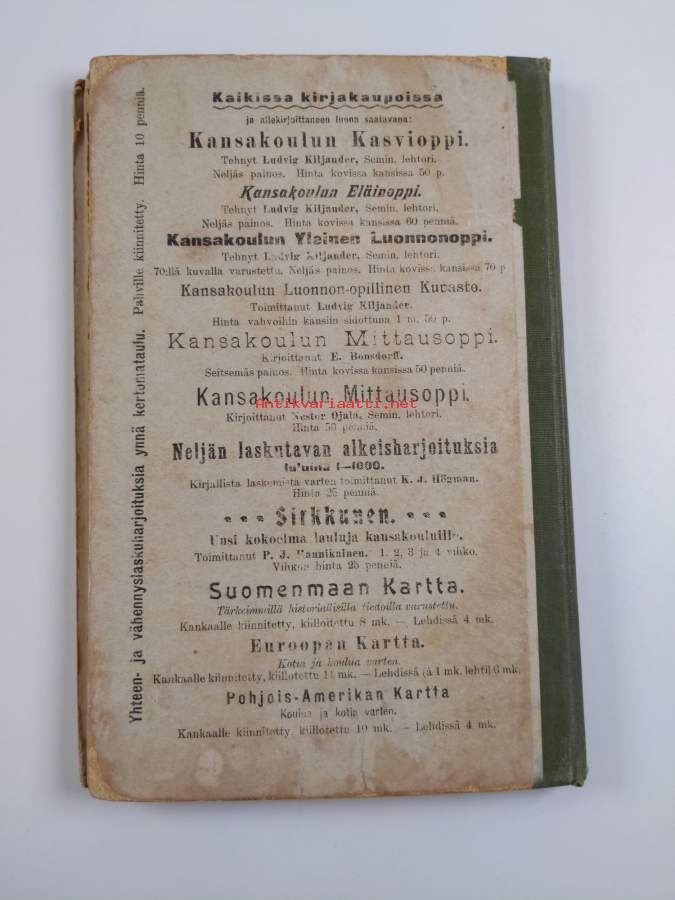 Kaikissa kirjakaupoissa
ja allekirjoittaneen luona saatavana:
Kansakoulun Kasvioppi.
Tehnyt Ludvig Kiljander, Semin. lehtori.
Neljäs painos. Hinta kovissa kansissa 50 p.
Kansakoulun Eläinoppi.
Tehnyt Ludvig Kiljander, Semin. lehtori.
Neljäs painos. Hinta kovissa kansissa 60 penniä.
Kansakoulun Yleinen Luonnonoppi.
Tehnyt Ludvig Kiljander, Semin. lehtori.
70:llä kuvalla varustettu. Neljäs painos. Hinta kovissa kansissa 70 p
Kansakoulun Luonnon-opillinen Kuvasto.
Toimittanut Ludvig Kiljander.
Hinta vahvoihin kansiin sidottuna 1 m. 50 p.
Kansakoulun Mittausoppi.
Kirjoittanut E. Bonsdorff.
Seitsemäs painos. Hinta kovissa kansissa 50 penniä.
Kansakoulun Mittausoppi.
Antikvariaatti.net
Kirjoittanut Nestor Ojala, Semin. lehtori.
Hinta 50 penniä.
Neljän laskutavan alkeisharjoituksia
lu'uilla 1—1000.
Kirjallista laskemista varten toimittanut K. J. Hågman.
Hinta 25 penniä.
Sirkkunen.
Uusi kokoelma lauluja kansakouluille.
Toimittanut P. J. Hannikainen. 1, 2, 3 ja 4 vihko.
Vihkon hinta 25 penniä.
Suomenmaan Kartta.
Tärkeimmillä historiallisilla tiedoilla varustettu.
Kankaalle kiinnitetty, kiilloitettu 8 mk. — Lehdissä 4 mk.
Euroopan Kartta.
Kotia ja koulua varten.
Kankaalle kiinnitetty, kiillotettu 11 mk. — Lehdissä (à 1 mk. lehti) 6 mk.
Pohjois-Amerikan Kartta
Koulua ja kotia varten.
Kankaalle kiinnitetty, kiillotettu 10 mk. — Lehdissä 4 mk.
Yhteen- ja vähennyslaskuharjoituksia ynnä kertomataulu. Pahville kiinnitetty. Hinta 10 penniä.